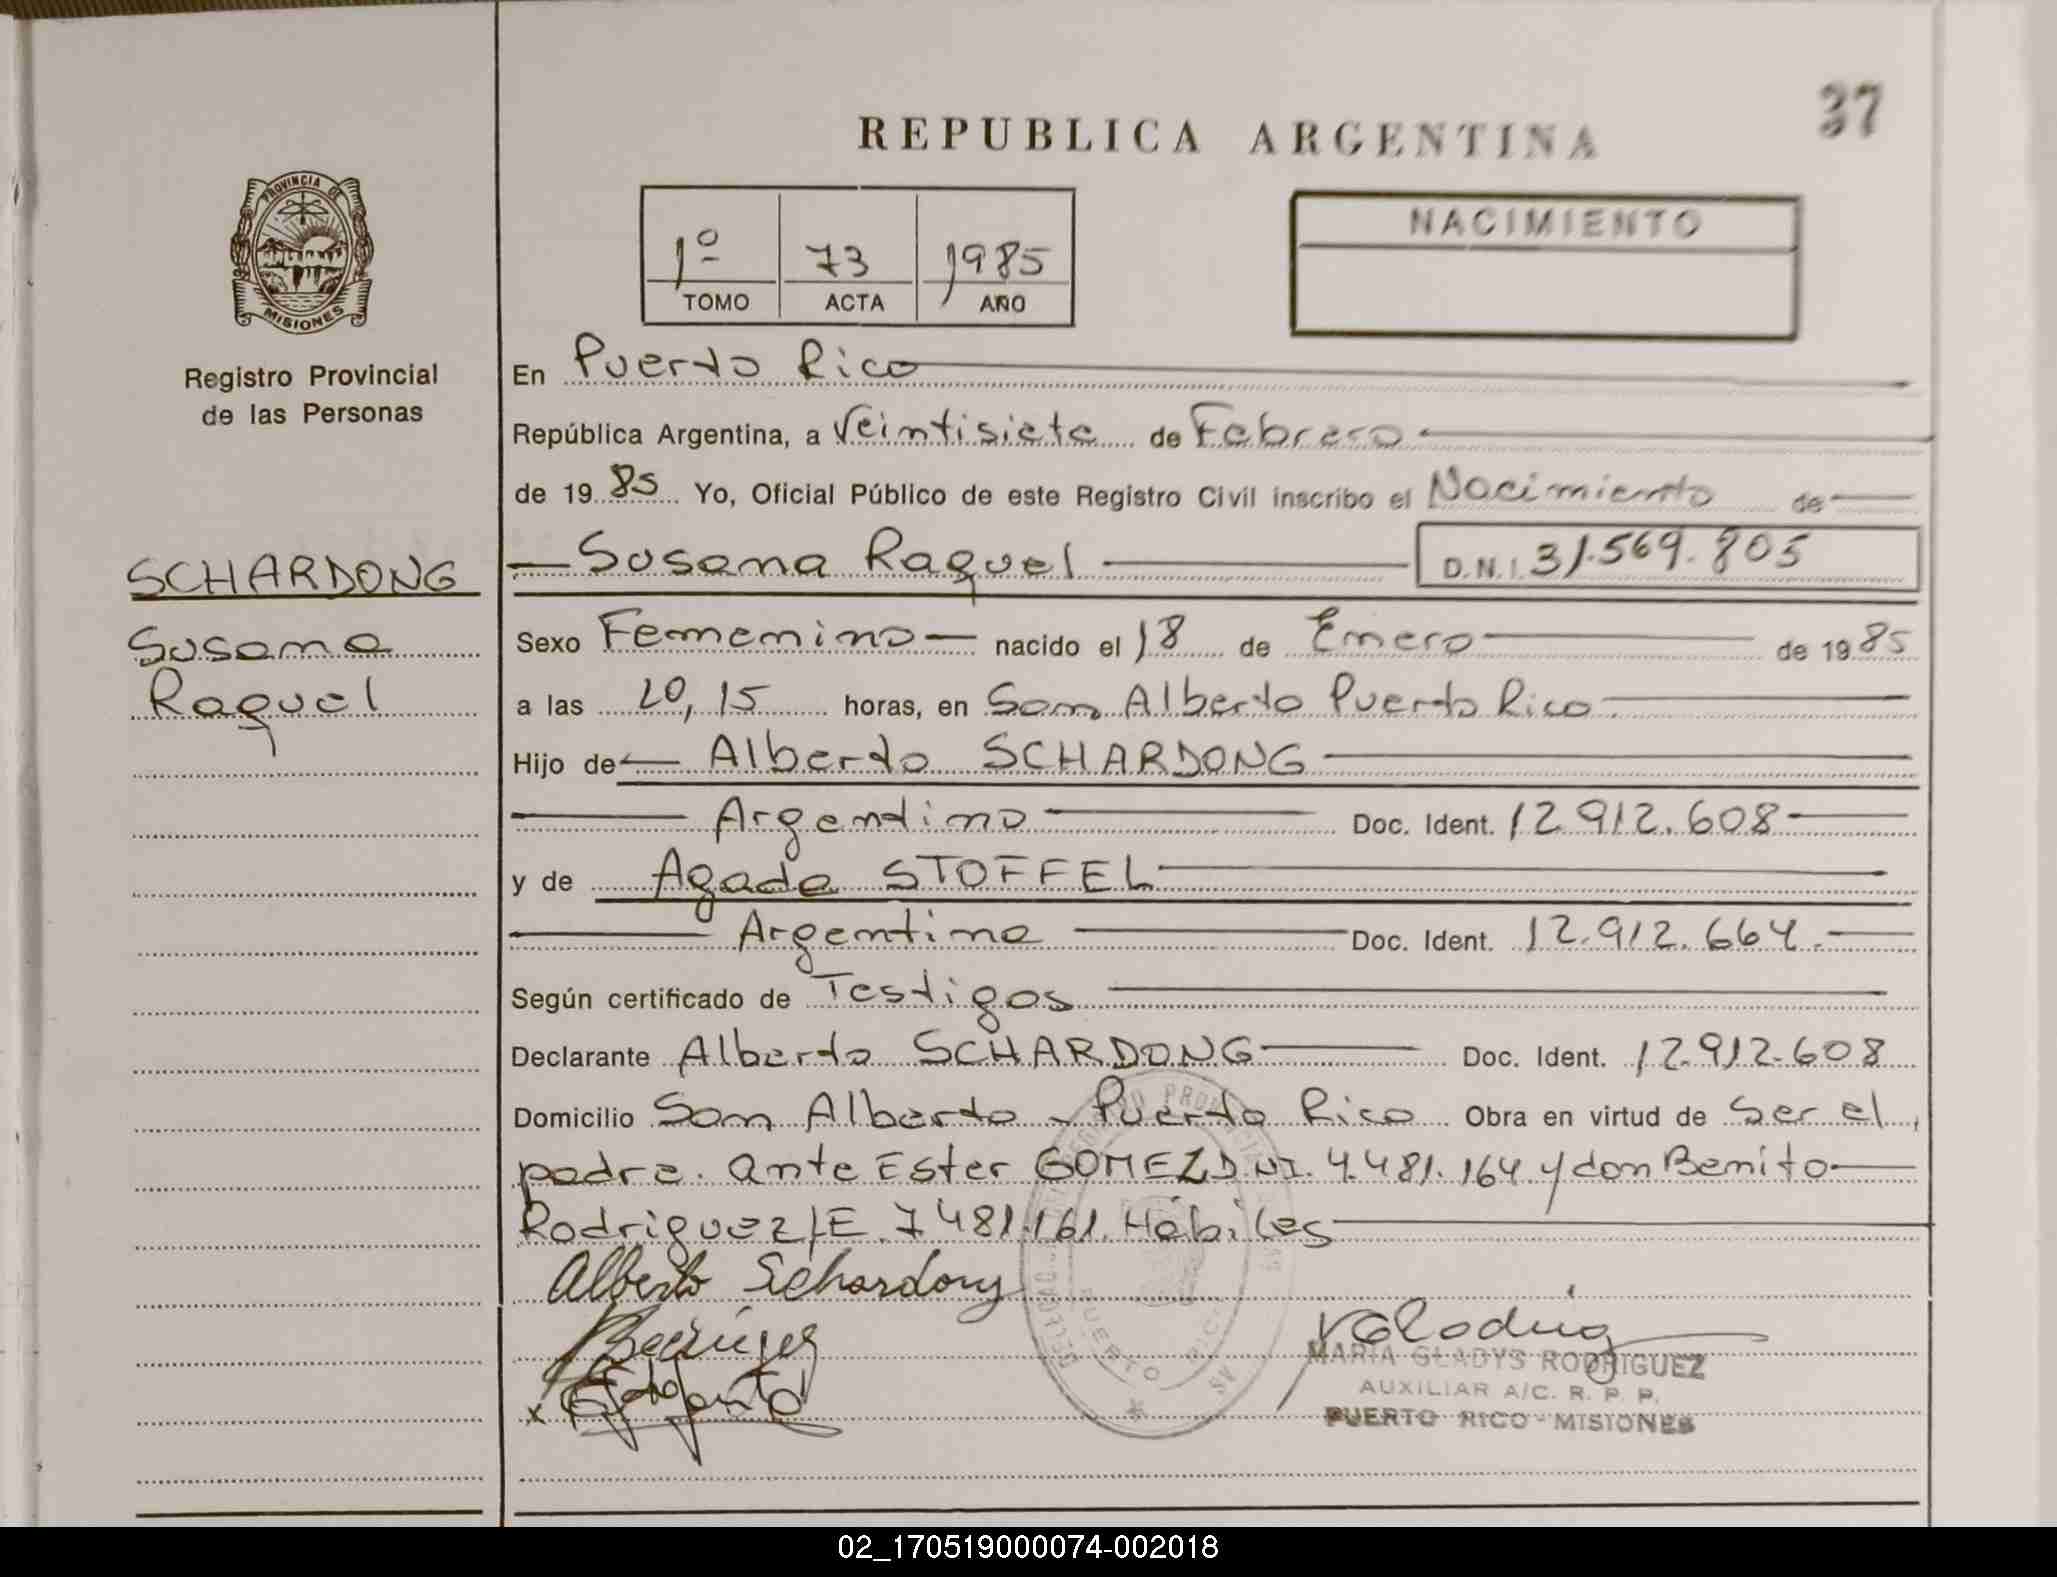 37
REPUBLICA ARGENTINA
PROVINCIA DE
MISIONES
Registro Provincial
de las Personas
SCHARDONG
Susana
Raquel
1º 73 1985
TOMO ACTA AÑO
NACIMIENTO
En Puerto Rico
República Argentina, a Veintisiete de Febrero
de 1985 Yo, Oficial Público de este Registro Civil inscribo el Nacimiento de
Susana Raquel D.N.I. 31.569.805
Sexo Femenino nacido el 18 de Enero de 1985
a las 20,15 horas, en San Alberto Puerto Rico
Hijo de Alberto SCHARDONG
Argentino Doc. Ident. 12.912.608
y de Agada STOFFEL
Argentina Doc. Ident. 12.912.664.
Según certificado de Testigos
Declarante Alberto SCHARDONG Doc. Ident. 12.912.608
Domicilio San Alberto - Puerto Rico Obra en virtud de Ser el
padre. ante Ester GOMEZ D.NI. 4.481.164 y don Benito
Rodriguez LE. 7481.161. Hábiles
Alberto Schardong
PUERTO RICO
MARIA GLADYS RODRIGUEZ
AUXILIAR A/C. R. P. P.
PUERTO RICO - MISIONES
02_170519000074-002018